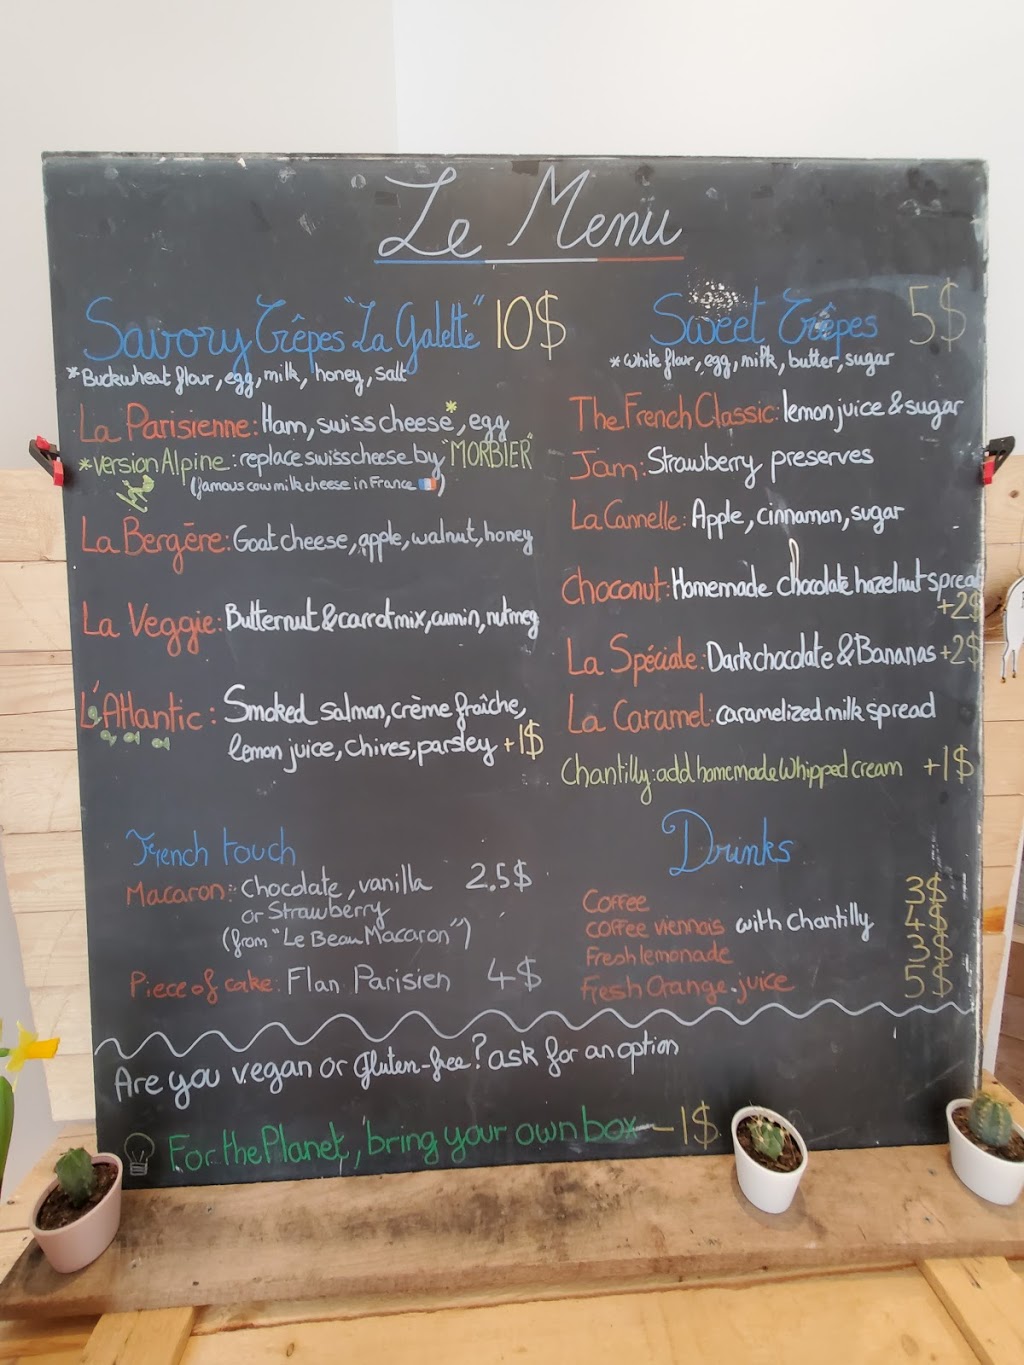 Le Menu
Savory Crêpes "La Galette" 10$
*Buckwheat flour, egg, milk, honey, salt
La Parisienne: Ham, swiss cheese*, egg
*version Alpine: replace swiss cheese by "MORBIER"
(famous cow milk cheese in France)
La Bergère: Goat cheese, apple, walnut, honey
La Veggie: Butternut & carrot mix, cumin, nutmeg
L'Atlantic: Smoked salmon, crème fraîche,
lemon juice, chives, parsley +1$
Sweet Crêpes 5$
*white flour, egg, milk, butter, sugar
The French Classic: lemon juice & sugar
Jam: Strawberry preserves
La Cannelle: Apple, cinnamon, sugar
Choconut: Homemade chocolate hazelnut spread
+2$
La Spéciale: Dark chocolate & Bananas +2$
La Caramel: caramelized milk spread
Chantilly: add homemade Whipped cream +1$
French touch
Macaron: Chocolate, vanilla 2.5$
or Strawberry
(from "Le Beau Macaron")
Piece of cake: Flan Parisien 4$
Drinks
Coffee 3$
Coffee viennois with Chantilly 4$
Fresh lemonade 3$
Fresh Orange juice 5$
Are you vegan or gluten-free? ask for an option
For the Planet, bring your own box -1$